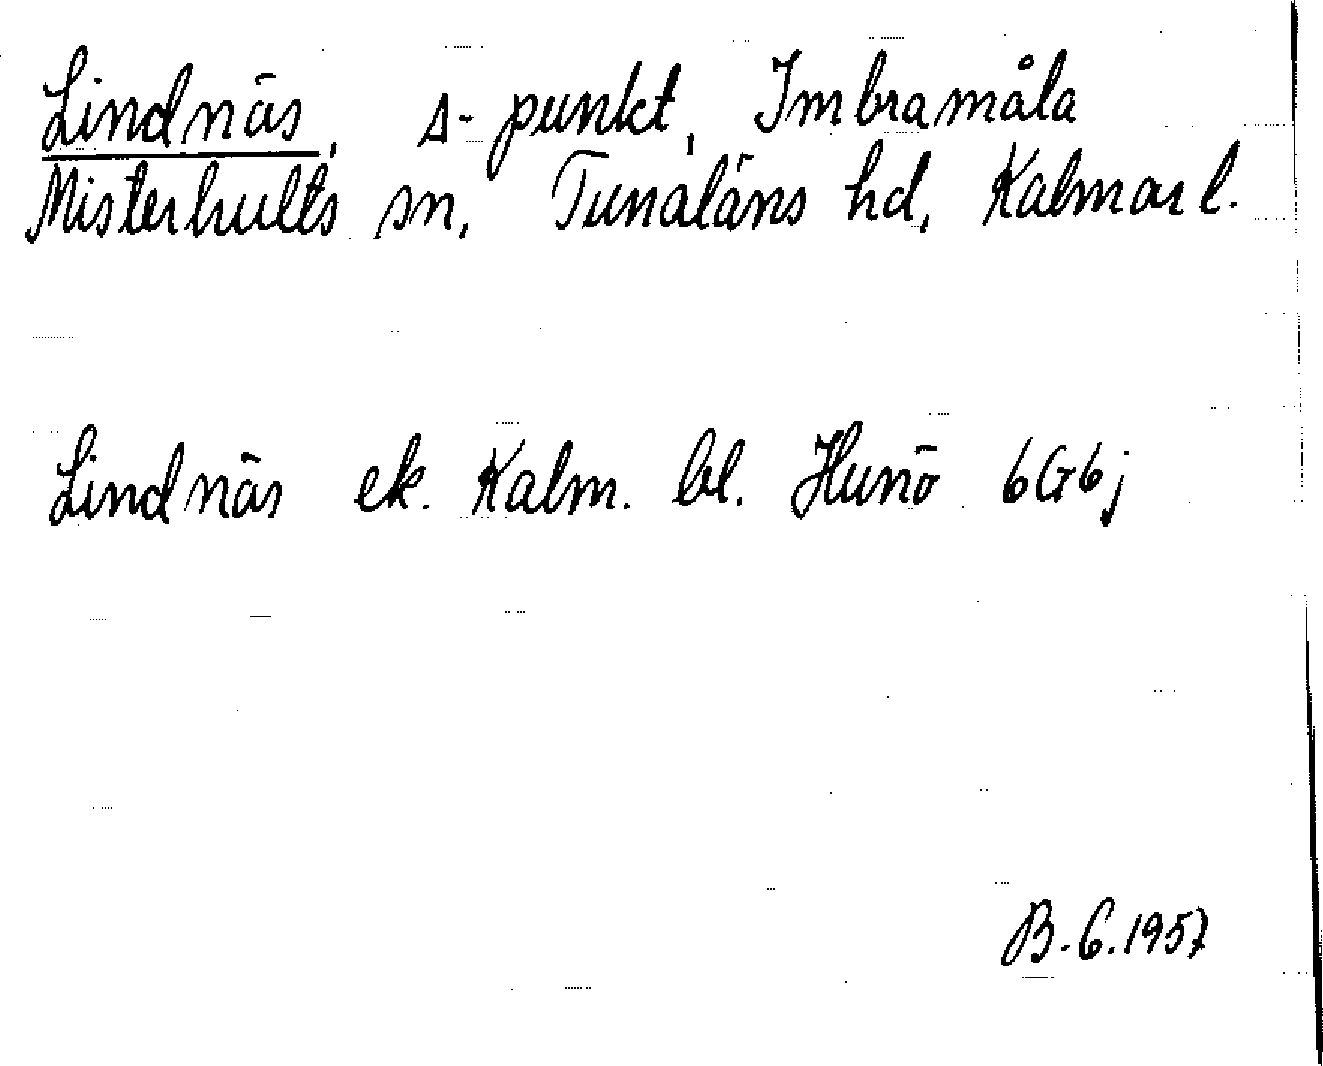 Lindnäs, Δ-punkt, Imbramåla
Misterhults sn, Tunaläns hd, Kalmar l.
Lindnäs ek. Kalm. bl. Hunö 6G6j
B.G.1957